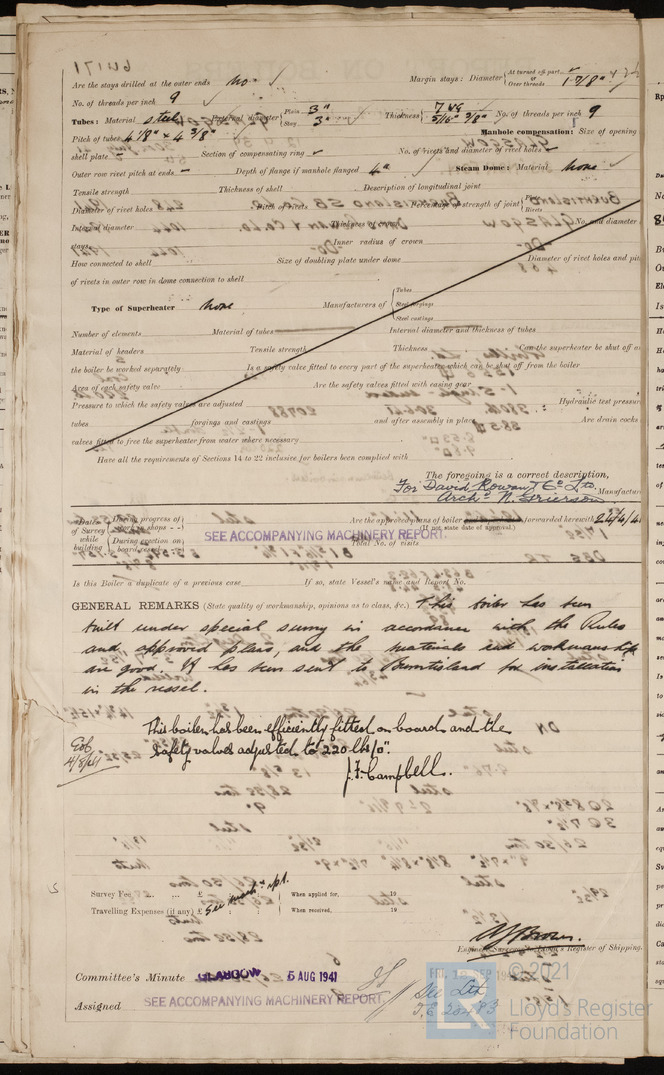 64171
Are the stays drilled at the outer ends No Margin stays: Diameter { At turned off part, or Over threads 1-7/8"
No. of threads per inch 9
Tubes: Material steel External diameter { Plain 3" Stay 3" Thickness { 7 WG 5/16" 3/8" No. of threads per inch 9
Pitch of tubes 4 1/8" x 4 3/8" Manhole compensation: Size of opening
shell plate Section of compensating ring No. of rivets and diameter of rivet holes
Outer row rivet pitch at ends Depth of flange if manhole flanged 4" Steam Dome: Material None
Tensile strength Thickness of shell Description of longitudinal joint
Diameter of rivet holes Pitch of rivets Percentage of strength of joint { Plate Rivets
Internal diameter Thickness of crown No. and diameter
stays Inner radius of crown
How connected to shell Size of doubling plate under dome Diameter of rivet holes and pitch
of rivets in outer row in dome connection to shell
Type of Superheater None Manufacturers of { Tubes Steel forgings Steel castings
Number of elements Material of tubes Internal diameter and thickness of tubes
Material of headers Tensile strength Thickness Can the superheater be shut off a
the boiler be worked separately Is a safety valve fitted to every part of the superheater which can be shut off from the boiler
Area of each safety valve Are the safety valves fitted with easing gear
Pressure to which the safety valves are adjusted Hydraulic test pressure
tubes forgings and castings and after assembly in place Are drain cocks
valves fitted to free the superheater from water where necessary
Have all the requirements of Sections 14 to 22 inclusive for boilers been complied with
The foregoing is a correct description,
For David Rowan & Co Ltd.
Archd. N. Grierson Manufactur
Dates of Survey while building { During progress of work in shops - - During erection on board vessel - - Are the approved plans of boiler forwarded herewith 24/4/4
(If not state date of approval.)
SEE ACCOMPANYING MACHINERY REPORT.
Total No. of visits
Is this Boiler a duplicate of a previous case If so, state Vessel's name and Report No.
GENERAL REMARKS (State quality of workmanship, opinions as to class, &c.) This boiler has been
built under special survey in accordance with the Rules
and approved plans, and the materials and workmanship
are good. It has been sent to Burntisland for installation
in the vessel.
This boiler has been efficiently fitted on board and the
safety valves adjusted to 220 lbs/□".
J. F. Campbell.
4/8/41
Survey Fee £ See Mach. Rpt. When applied for, 19
Travelling Expenses (if any) £ When received, 19
Engineer Surveyor to Lloyd's Register of Shipping.
Committee's Minute GLASGOW 5 AUG 1941
FRI. SEP
Assigned SEE ACCOMPANYING MACHINERY REPORT.
© 2021
Lloyd's Register
Foundation